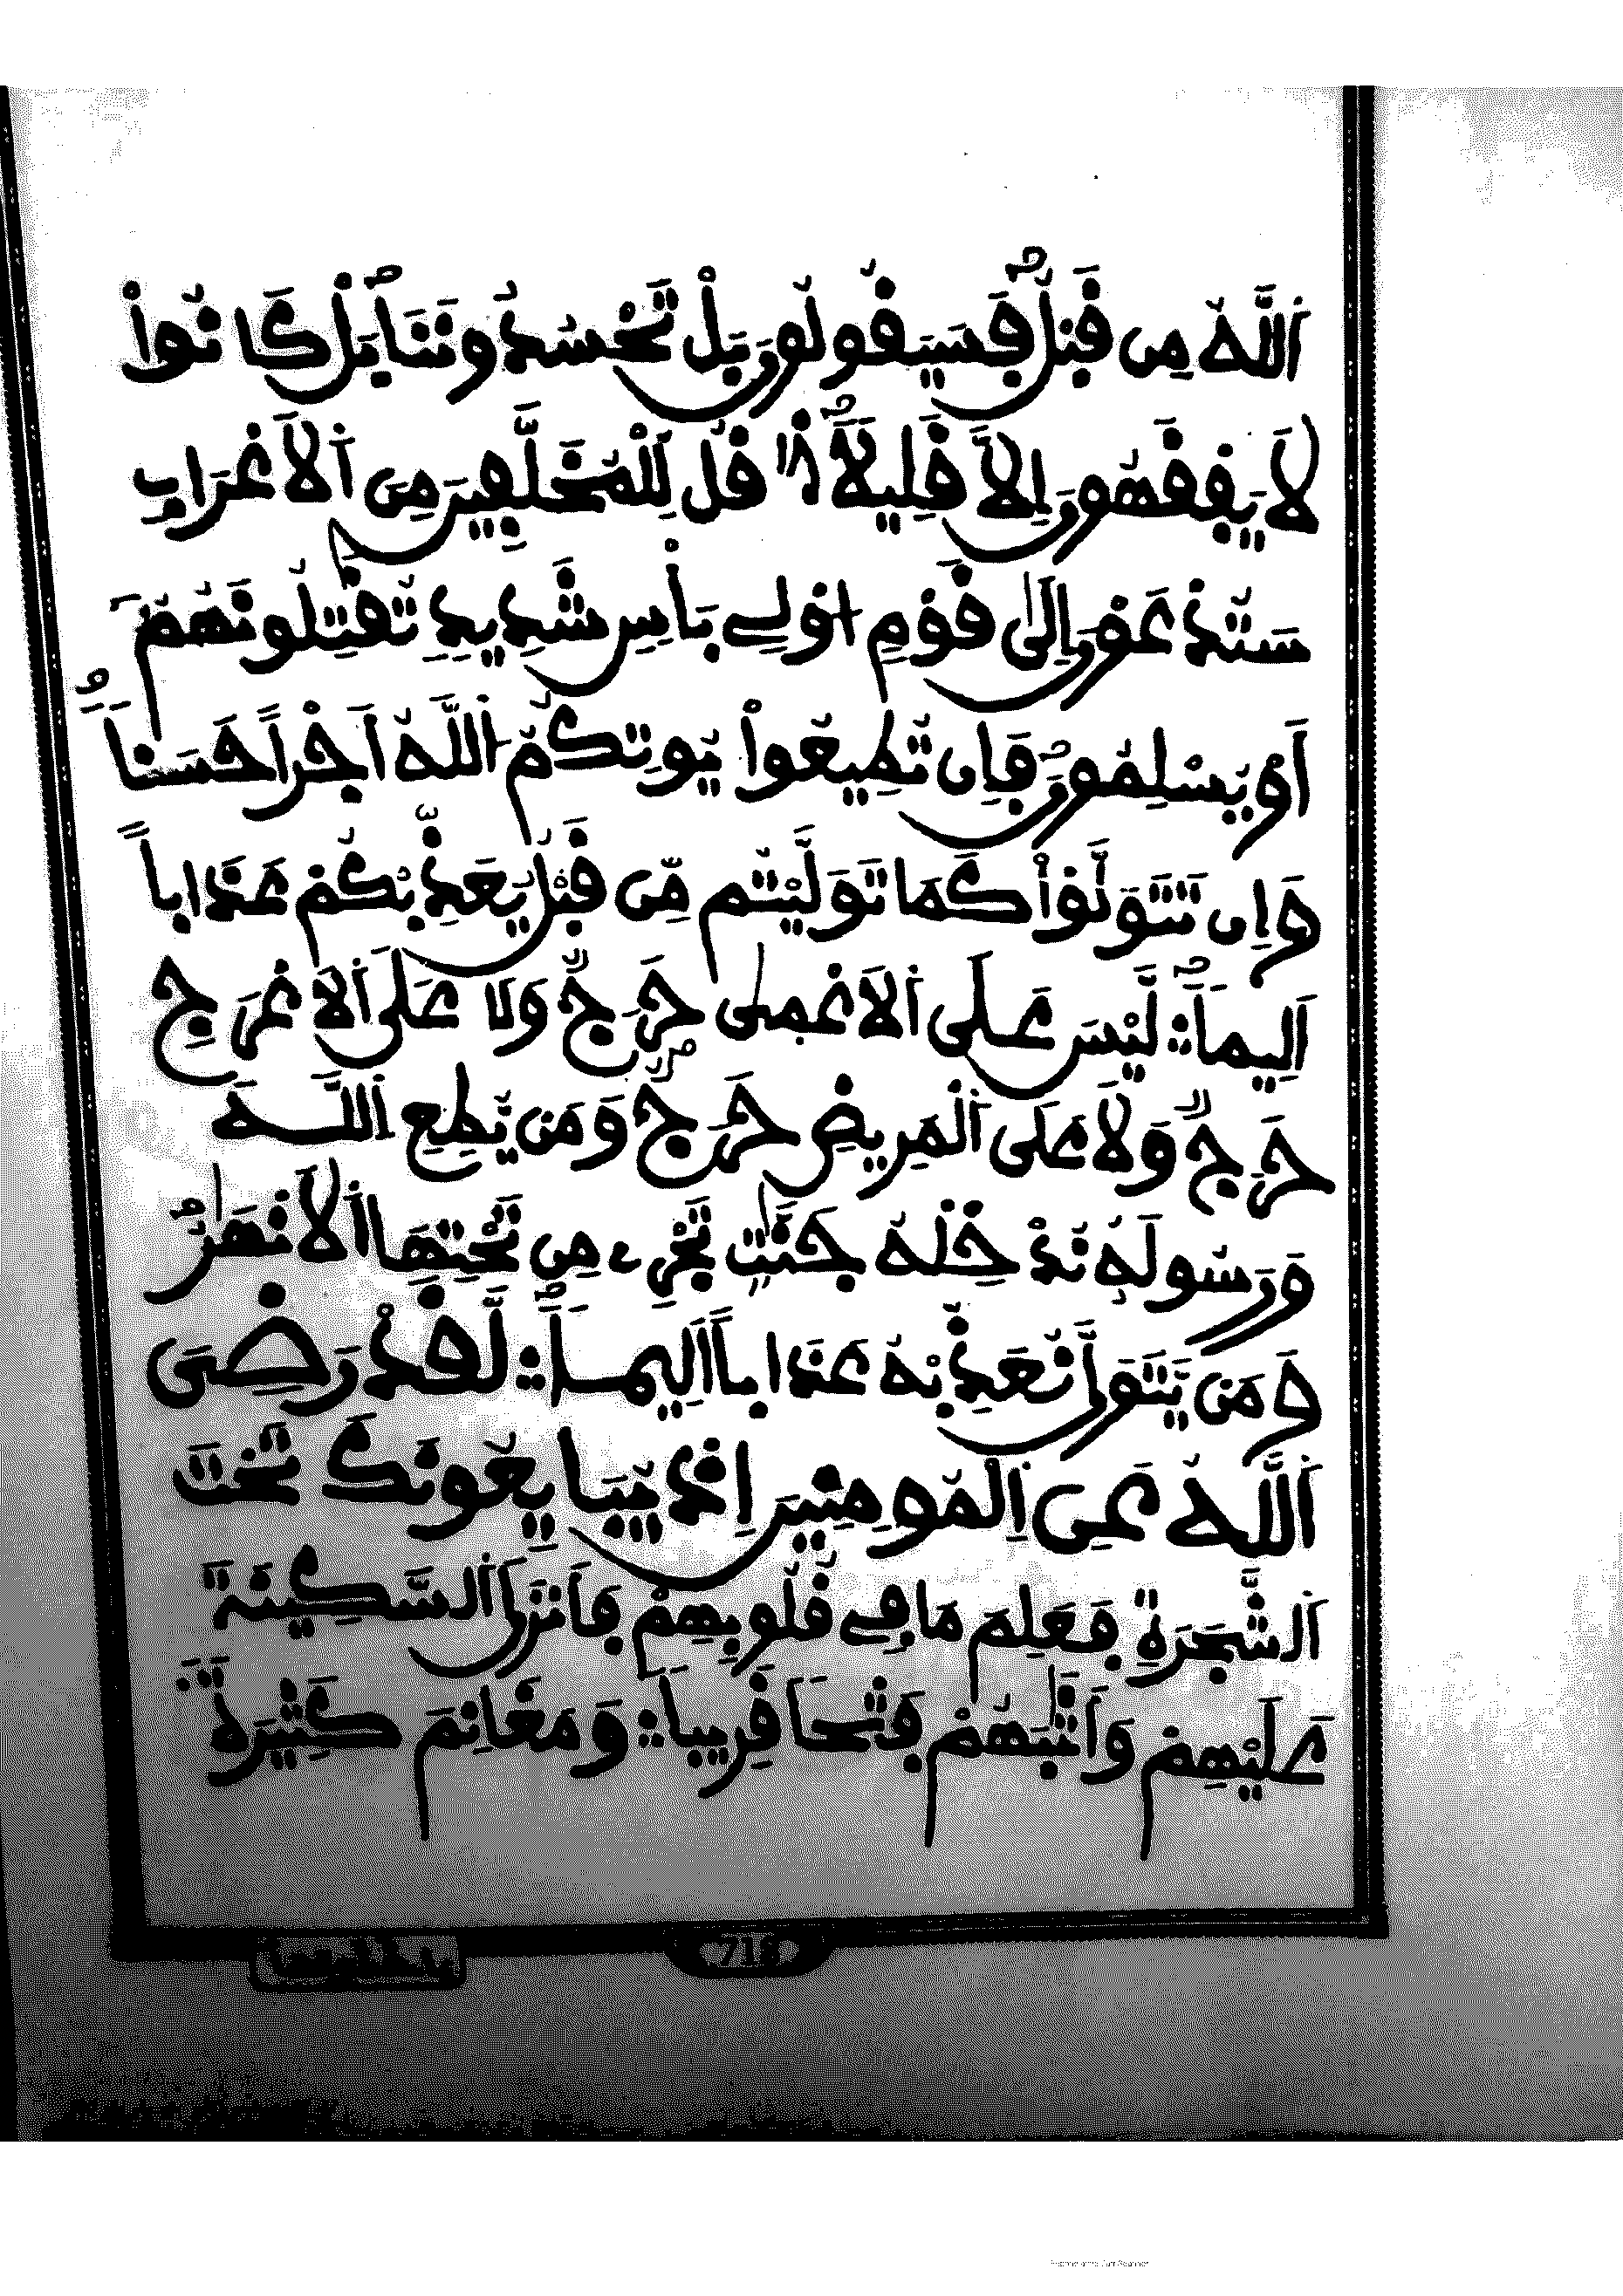 اَللَّهُ مِن قَبْلُ فَسَيَقُولُونَ بَلْ تَحْسُدُونَنَا بَلْ كَانُواْ
لاَ يَفْقَهُونَ إِلاَّ قَلِيلاً قُل لِّلْمُخَلَّفِينَ مِنَ اَلاَعْرَابِ
سَتُدْعَوْنَ إِلَى قَوْمٍ اوْلِے بَأْسٍ شَدِيدٍ تُقَٰتِلُونَهُمُ
أَوْ يُسْلِمُونَ فَإِن تُطِيعُواْ يُوتِكُمُ اللَّهُ أَجْراً حَسَناً
وَإِن تَتَوَلَّوْاْ كَمَا تَوَلَّيْتُم مِّن قَبْلُ يُعَذِّبْكُمْ عَذَاباً
اَلِيماً لَيْسَ عَلَى اَلاَعْمَىٰ حَرَجٌ وَلاَ عَلَى اَلاَعْرَجِ
حَرَجٌ وَلاَ عَلَى اَلْمَرِيضِ حَرَجٌ وَمَن يُطِعِ اِللَّهَ
وَرَسُولَهُ نُدْخِلْهُ جَنَّٰتٍ تَجْرِے مِن تَحْتِهَا اَلاَنْهَٰرُ
وَمَن يَتَوَلَّ نُعَذِّبْهُ عَذَاباً اَلِيماً لَّقَدْ رَضِىَ
اَللَّهُ عَنِ اِلْمُومِنِينَ إِذْ يُبَايِعُونَكَ تَحْتَ
اَلشَّجَرَةِ فَعَلِمَ مَا فِے قُلُوبِهِمْ فَأَنزَلَ اَلسَّكِينَةَ
عَلَيْهِمْ وَأَثَٰبَهُمْ فَتْحاً قَرِيباً وَمَغَانِمَ كَثِيرَةً
718